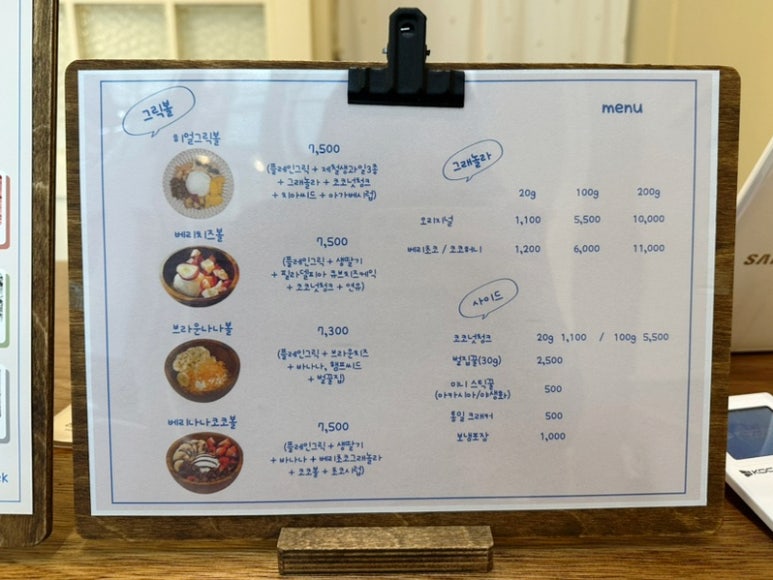 menu
그릭볼
리얼그릭볼
7,500
(플레인그릭 + 제철생과일3종
+ 그래놀라 + 코코넛청크
+ 치아씨드 + 아가베시럽)
베리치즈볼
7,500
(플레인그릭 + 생딸기
+ 필라델피아 큐브치즈케익
+ 코코넛청크 + 연유)
브라운나나볼
7,300
(플레인그릭 + 브라운치즈
+ 바나나, 햄프씨드
+ 벌꿀집)
베리나나코코볼
7,500
(플레인그릭 + 생딸기
+ 바나나 + 베리초코그래놀라
+ 코코볼 + 초코시럽)
그래놀라
20g 100g 200g
오리지널 1,100 5,500 10,000
베리초코 / 코코허니 1,200 6,000 11,000
사이드
코코넛청크 20g 1,100 / 100g 5,500
벌집꿀(30g) 2,500
미니 스틱꿀
(아카시아/야생화) 500
통밀 크래커 500
보냉포장 1,000